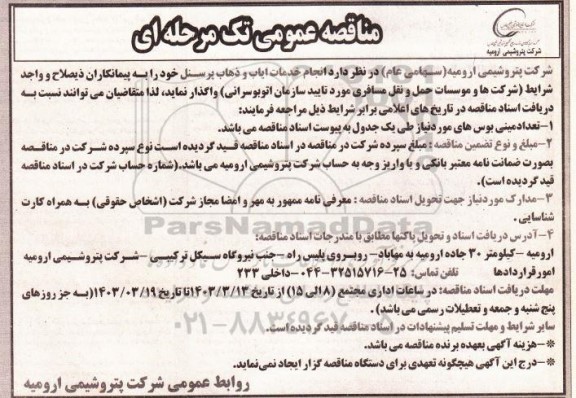 مناقصه عمومی تک مرحله ای
شرکت پتروشیمی ارومیه
شرکت پتروشیمی ارومیه(سهامی عام) در نظر دارد انجام خدمات ایاب و ذهاب پرسنل خود را به پیمانکاران ذیصلاح و واجد
شرایط (شرکت ها و موسسات حمل و نقل مسافری مورد تایید سازمان اتوبوسرانی) واگذار نماید، لذا متقاضیان می توانند نسبت به
دریافت اسناد مناقصه در تاریخ های اعلامی برابر شرایط ذیل مراجعه فرمایند:
۱-تعدادمینی بوس های موردنیاز طی یک جدول به پیوست اسناد مناقصه می باشد.
۲-مبلغ و نوع تضمین مناقصه : مبلغ سپرده شرکت در مناقصه در اسناد مناقصه قید گردیده است نوع سپرده شرکت در مناقصه
بصورت ضمانت نامه معتبر بانکی و یا واریز وجه به حساب شرکت پتروشیمی ارومیه می باشد.(شماره حساب شرکت در اسناد مناقصه
قید گردیده است).
۳-مدارک موردنیاز جهت تحویل اسناد مناقصه : معرفی نامه ممهور به مهر و امضا مجاز شرکت (اشخاص حقوقی) به همراه کارت
شناسایی .
ParsNamadData
۴-آدرس دریافت اسناد و تحویل پاکتها مطابق با مندرجات اسناد مناقصه:
ارومیه - کیلومتر ۳۰ جاده ارومیه به مهاباد- روبروی پلیس راه - جنب نیروگاه سیکل ترکیبی -شرکت پتروشیمی ارومیه
امورقراردادها تلفن تماس: ۲۵-۳۲۵۱۵۷۱۶-۰۴۴-داخلی ۲۳۳
مهلت دریافت اسناد مناقصه: در ساعات اداری مجتمع (۸ الی ۱۵) از تاریخ ۱۴۰۳/۳/۱۳ تا تاریخ ۱۴۰۳/۰۳/۱۹(به جز روزهای
پنج شنبه و جمعه و تعطیلات رسمی می باشد).
۰۲۱-۸۸۳۴۹۶۷۰
سایر شرایط و مهلت تسلیم پیشنهادات در اسناد مناقصه قید گردیده است.
*-هزینه آگهی بعهده برنده مناقصه می باشد.
*-درج این آگهی هیچگونه تعهدی برای دستگاه مناقصه گزار ایجاد نمی نماید.
روابط عمومی شرکت پتروشیمی ارومیه